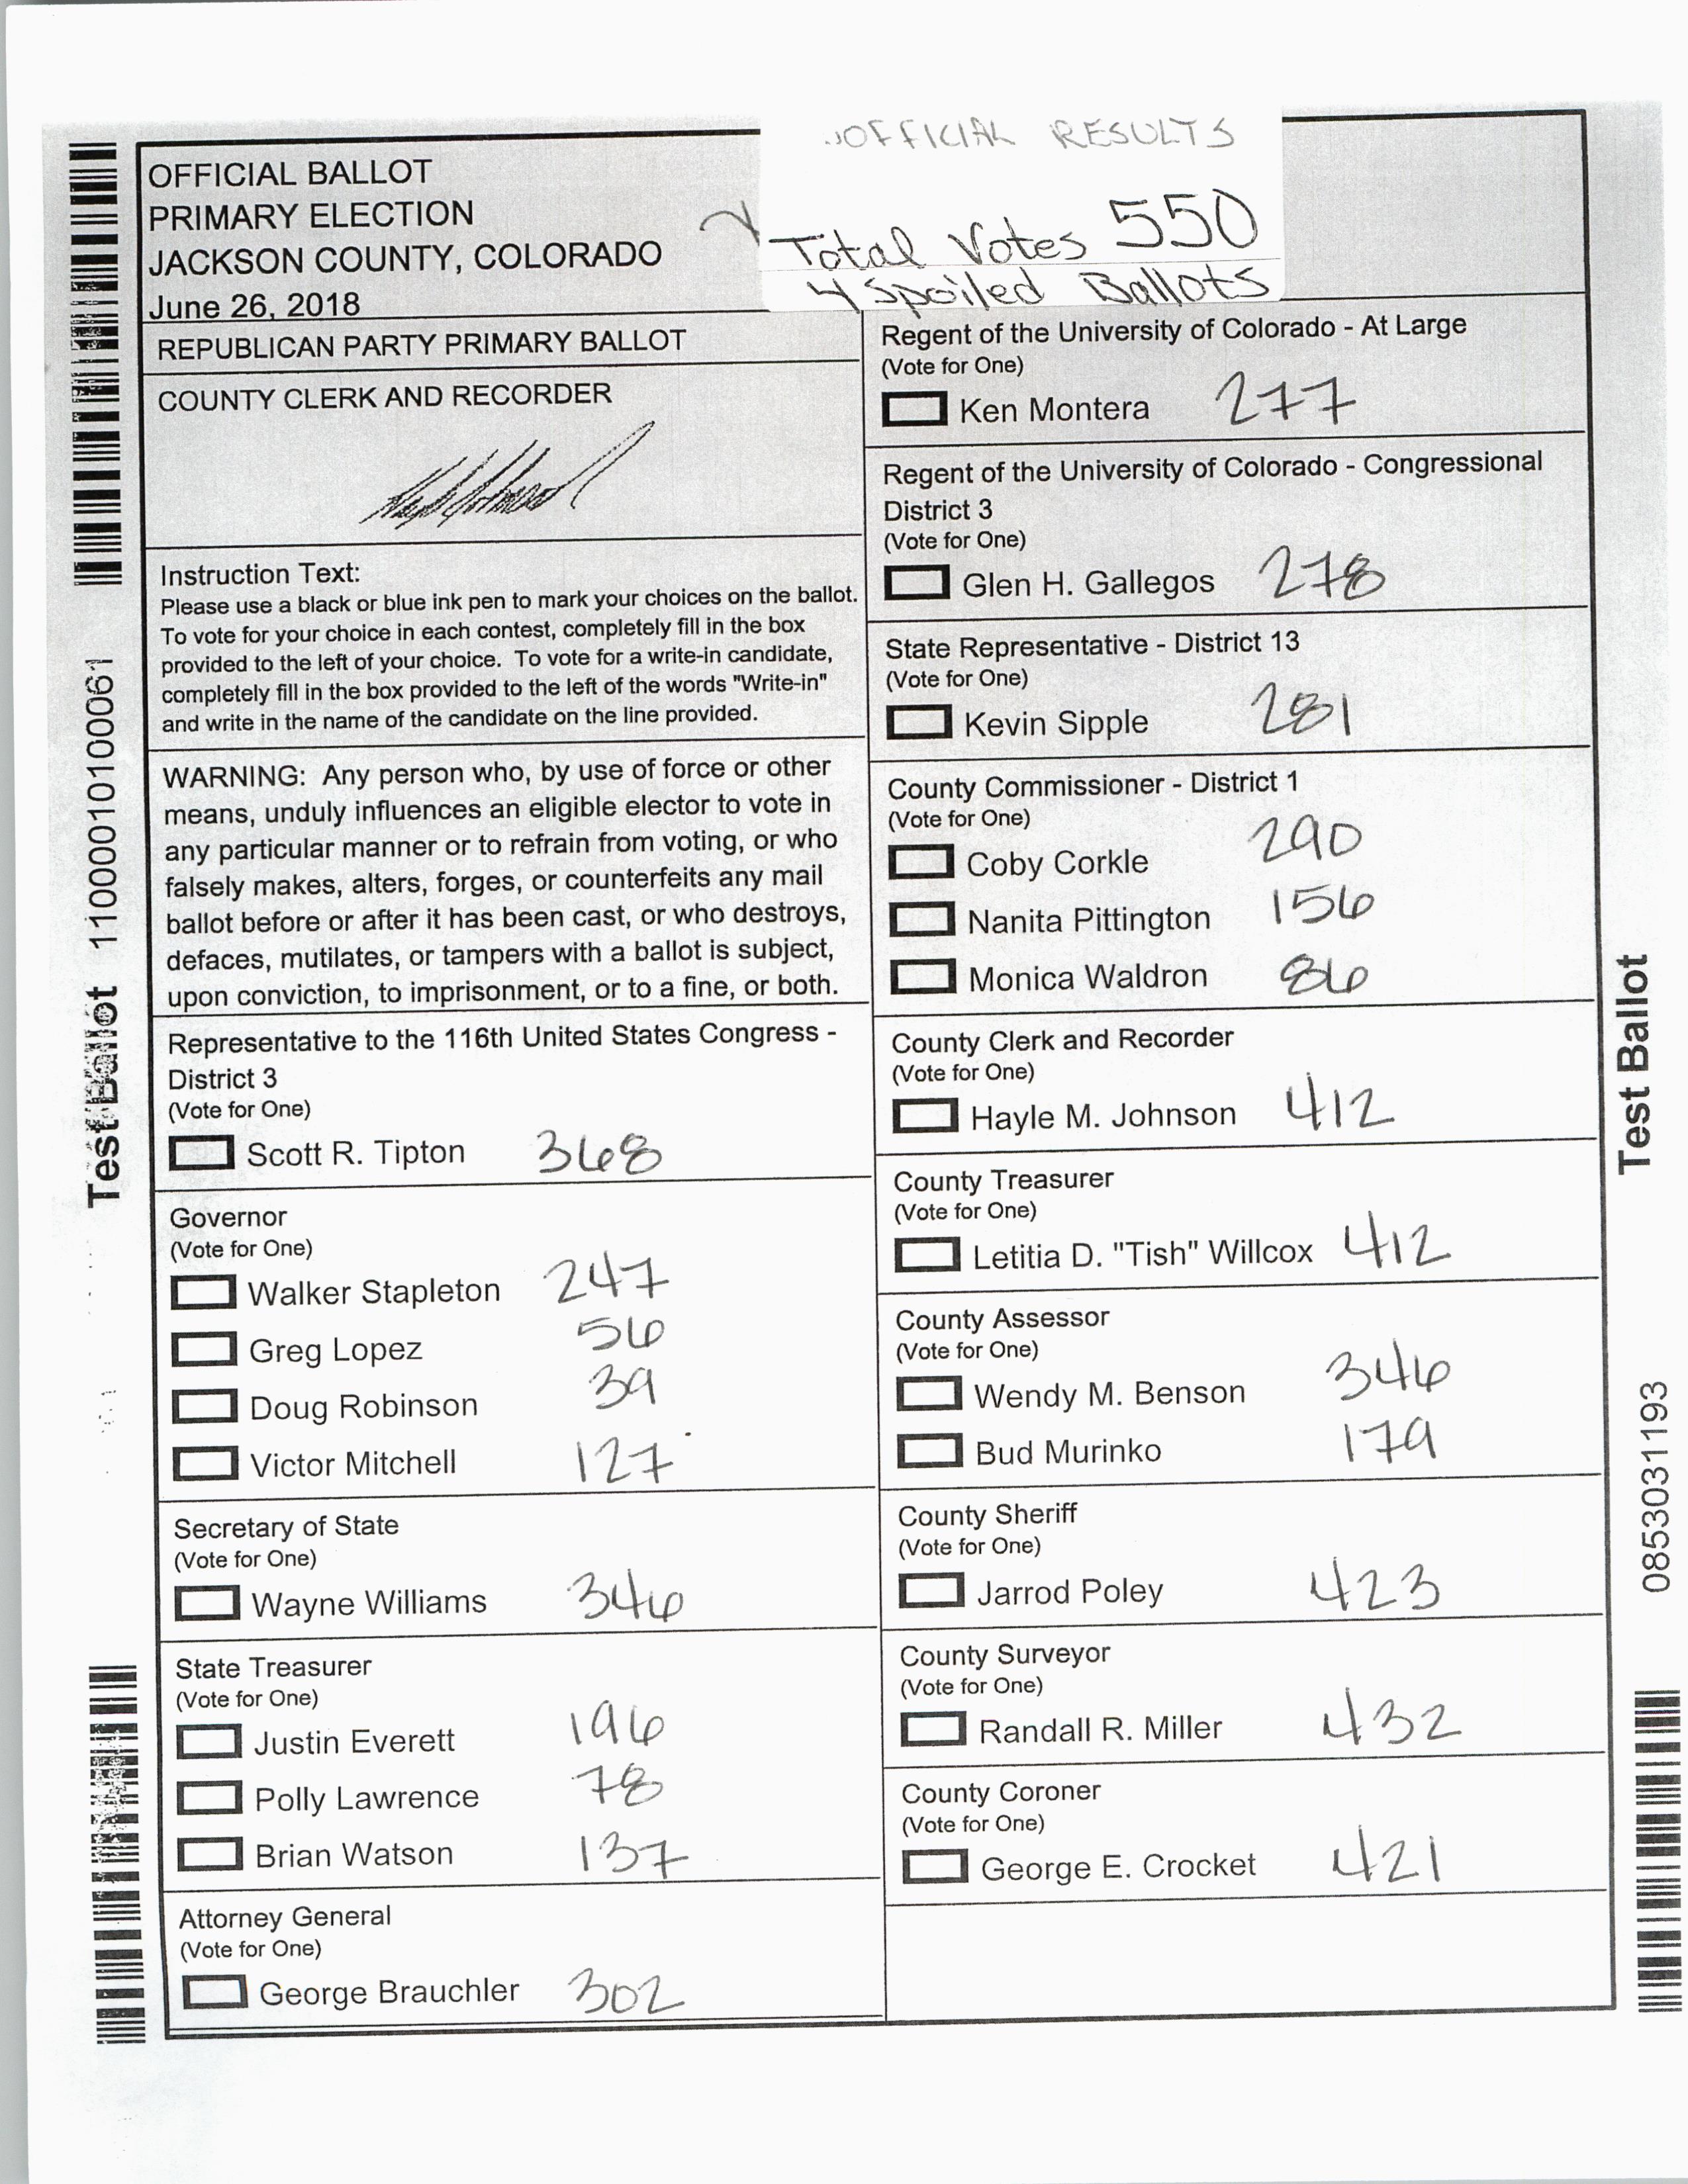 OFFICIAL RESULTS
Total Votes 550
4 Spoiled Ballots
OFFICIAL BALLOT
PRIMARY ELECTION
JACKSON COUNTY, COLORADO
June 26, 2018
REPUBLICAN PARTY PRIMARY BALLOT
COUNTY CLERK AND RECORDER
Instruction Text:
Please use a black or blue ink pen to mark your choices on the ballot.
To vote for your choice in each contest, completely fill in the box
provided to the left of your choice. To vote for a write-in candidate,
completely fill in the box provided to the left of the words "Write-in"
and write in the name of the candidate on the line provided.
WARNING: Any person who, by use of force or other
means, unduly influences an eligible elector to vote in
any particular manner or to refrain from voting, or who
falsely makes, alters, forges, or counterfeits any mail
ballot before or after it has been cast, or who destroys,
defaces, mutilates, or tampers with a ballot is subject,
upon conviction, to imprisonment, or to a fine, or both.
Representative to the 116th United States Congress -
District 3
(Vote for One)
Scott R. Tipton 368
Governor
(Vote for One)
Walker Stapleton 247
Greg Lopez 56
Doug Robinson 39
Victor Mitchell 127
Secretary of State
(Vote for One)
Wayne Williams 346
State Treasurer
(Vote for One)
Justin Everett 196
Polly Lawrence 78
Brian Watson 137
Attorney General
(Vote for One)
George Brauchler 302
Regent of the University of Colorado - At Large
(Vote for One)
Ken Montera 277
Regent of the University of Colorado - Congressional
District 3
(Vote for One)
Glen H. Gallegos 278
State Representative - District 13
(Vote for One)
Kevin Sipple 281
County Commissioner - District 1
(Vote for One)
Coby Corkle 290
Nanita Pittington 156
Monica Waldron 86
County Clerk and Recorder
(Vote for One)
Hayle M. Johnson 412
County Treasurer
(Vote for One)
Letitia D. "Tish" Willcox 412
County Assessor
(Vote for One)
Wendy M. Benson 346
Bud Murinko 179
County Sheriff
(Vote for One)
Jarrod Poley 423
County Surveyor
(Vote for One)
Randall R. Miller 432
County Coroner
(Vote for One)
George E. Crocket 421
Test Ballot 11000010100061
Test Ballot
0853031193